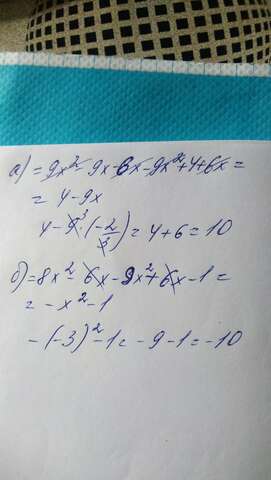 а) = 9x² - 9x - 6x - 9x² + 4 + 6x =
= 4 - 9x
4 - 9³ · (-2/3) = 4 + 6 = 10
б) = 8x² - 6x - 9x² + 6x - 1 =
= -x² - 1
-(-3)² - 1 = -9 - 1 = -10